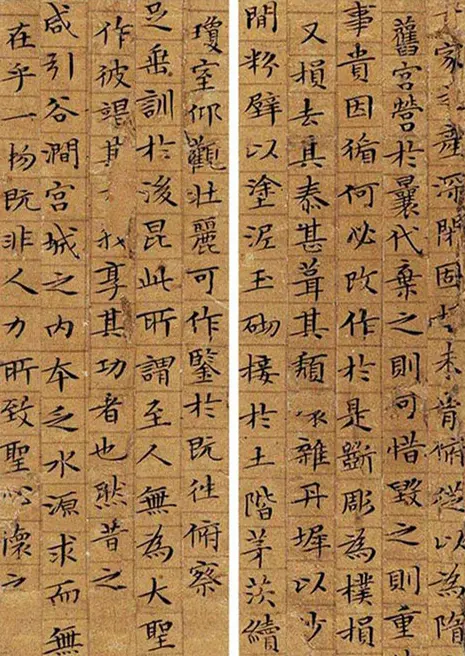 家之產深閉固未肯俯從以為隋
舊宮營於曩代棄之則可惜毀之則重
事貴因循何必改作於是斲彫為樸損
又損去其泰甚葺其頹雜丹墀以沙
間粉壁以塗泥玉砌接於土階茅茨續
瓊室仰觀壯麗可作鑒於既往俯察
足垂訓於後昆此所謂至人無為大聖
作彼竭其我享其功者也然昔之
咸引谷澗宮城之內本乏水源求而無
在乎一物既非人力所致聖心懷之